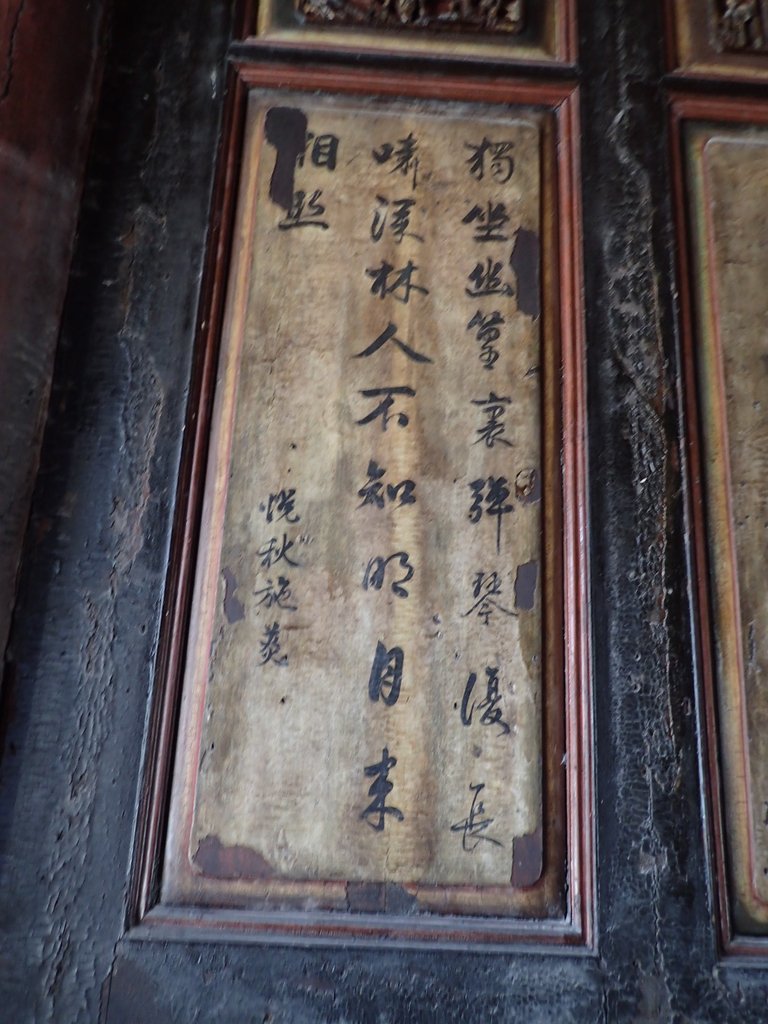 獨坐幽篁裏弹琴復長
嘯深林人不知明月来
相照
悦秋施